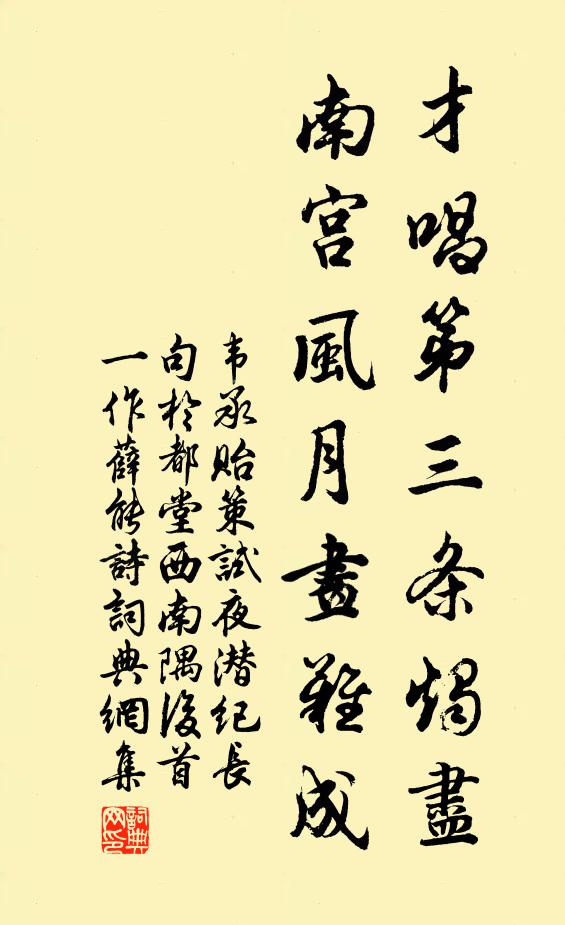 才唱第三条燭盡
南宫風月畫難成
韦承貽策試夜潜紀長
句於都堂西南隅後首
一作薛能詩詞典網集
詞典網印